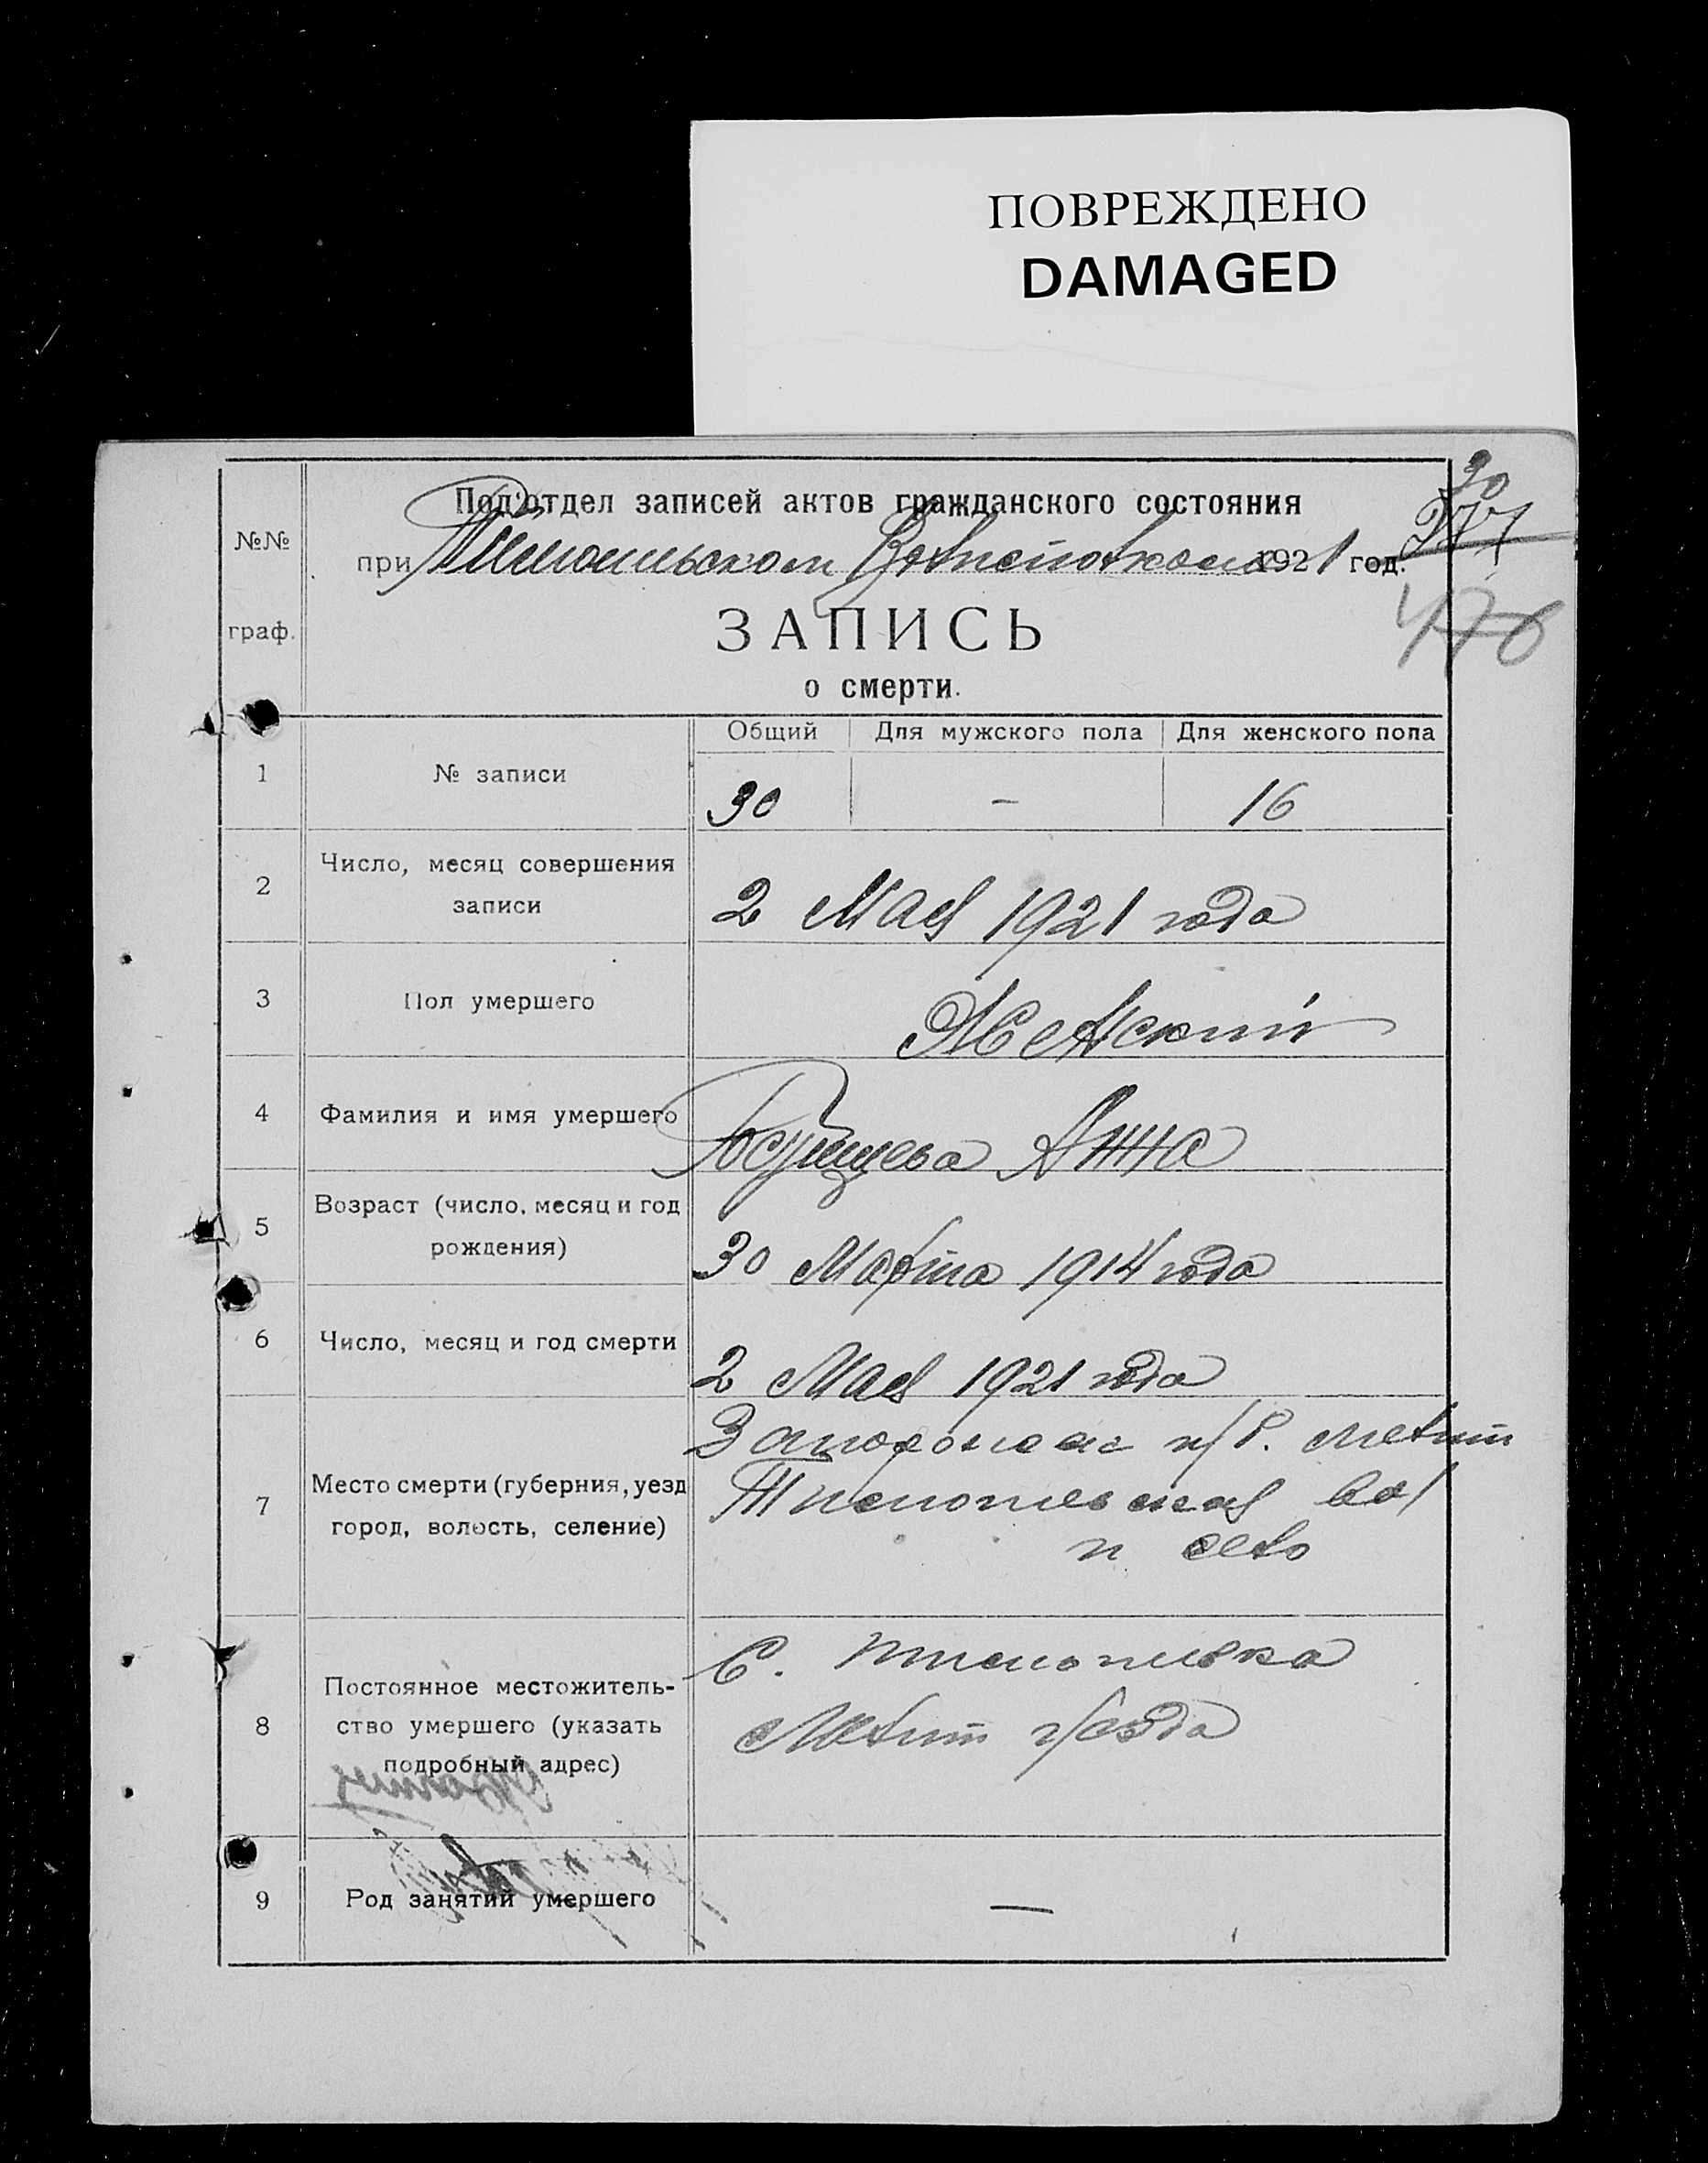 ПОВРЕЖДЕНО
DAMAGED
30
Под'отдел записей актов гражданского состояния
№№
при 1921 год.
граф.
ЗАПИСЬ
о смерти.
Общий Для мужского пола Для женского пола
1 № записи 30 – 16
2 Число, месяц совершения
записи
2 Мая 1921 года
3 Пол умершего Женский
4 Фамилия и имя умершего Анна
5 Возраст (число, месяц и год
рождения)
30 Марта 1914 года
6 Число, месяц и год смерти 2 Мая 1921 года
7 Место смерти (губерния, уезд
город, волость, селение)
Мелит
вол
и село
8 Постоянное местожитель-
ство умершего (указать
подробный адрес)
С.
Мелит уезда
9 Род занятий умершего —